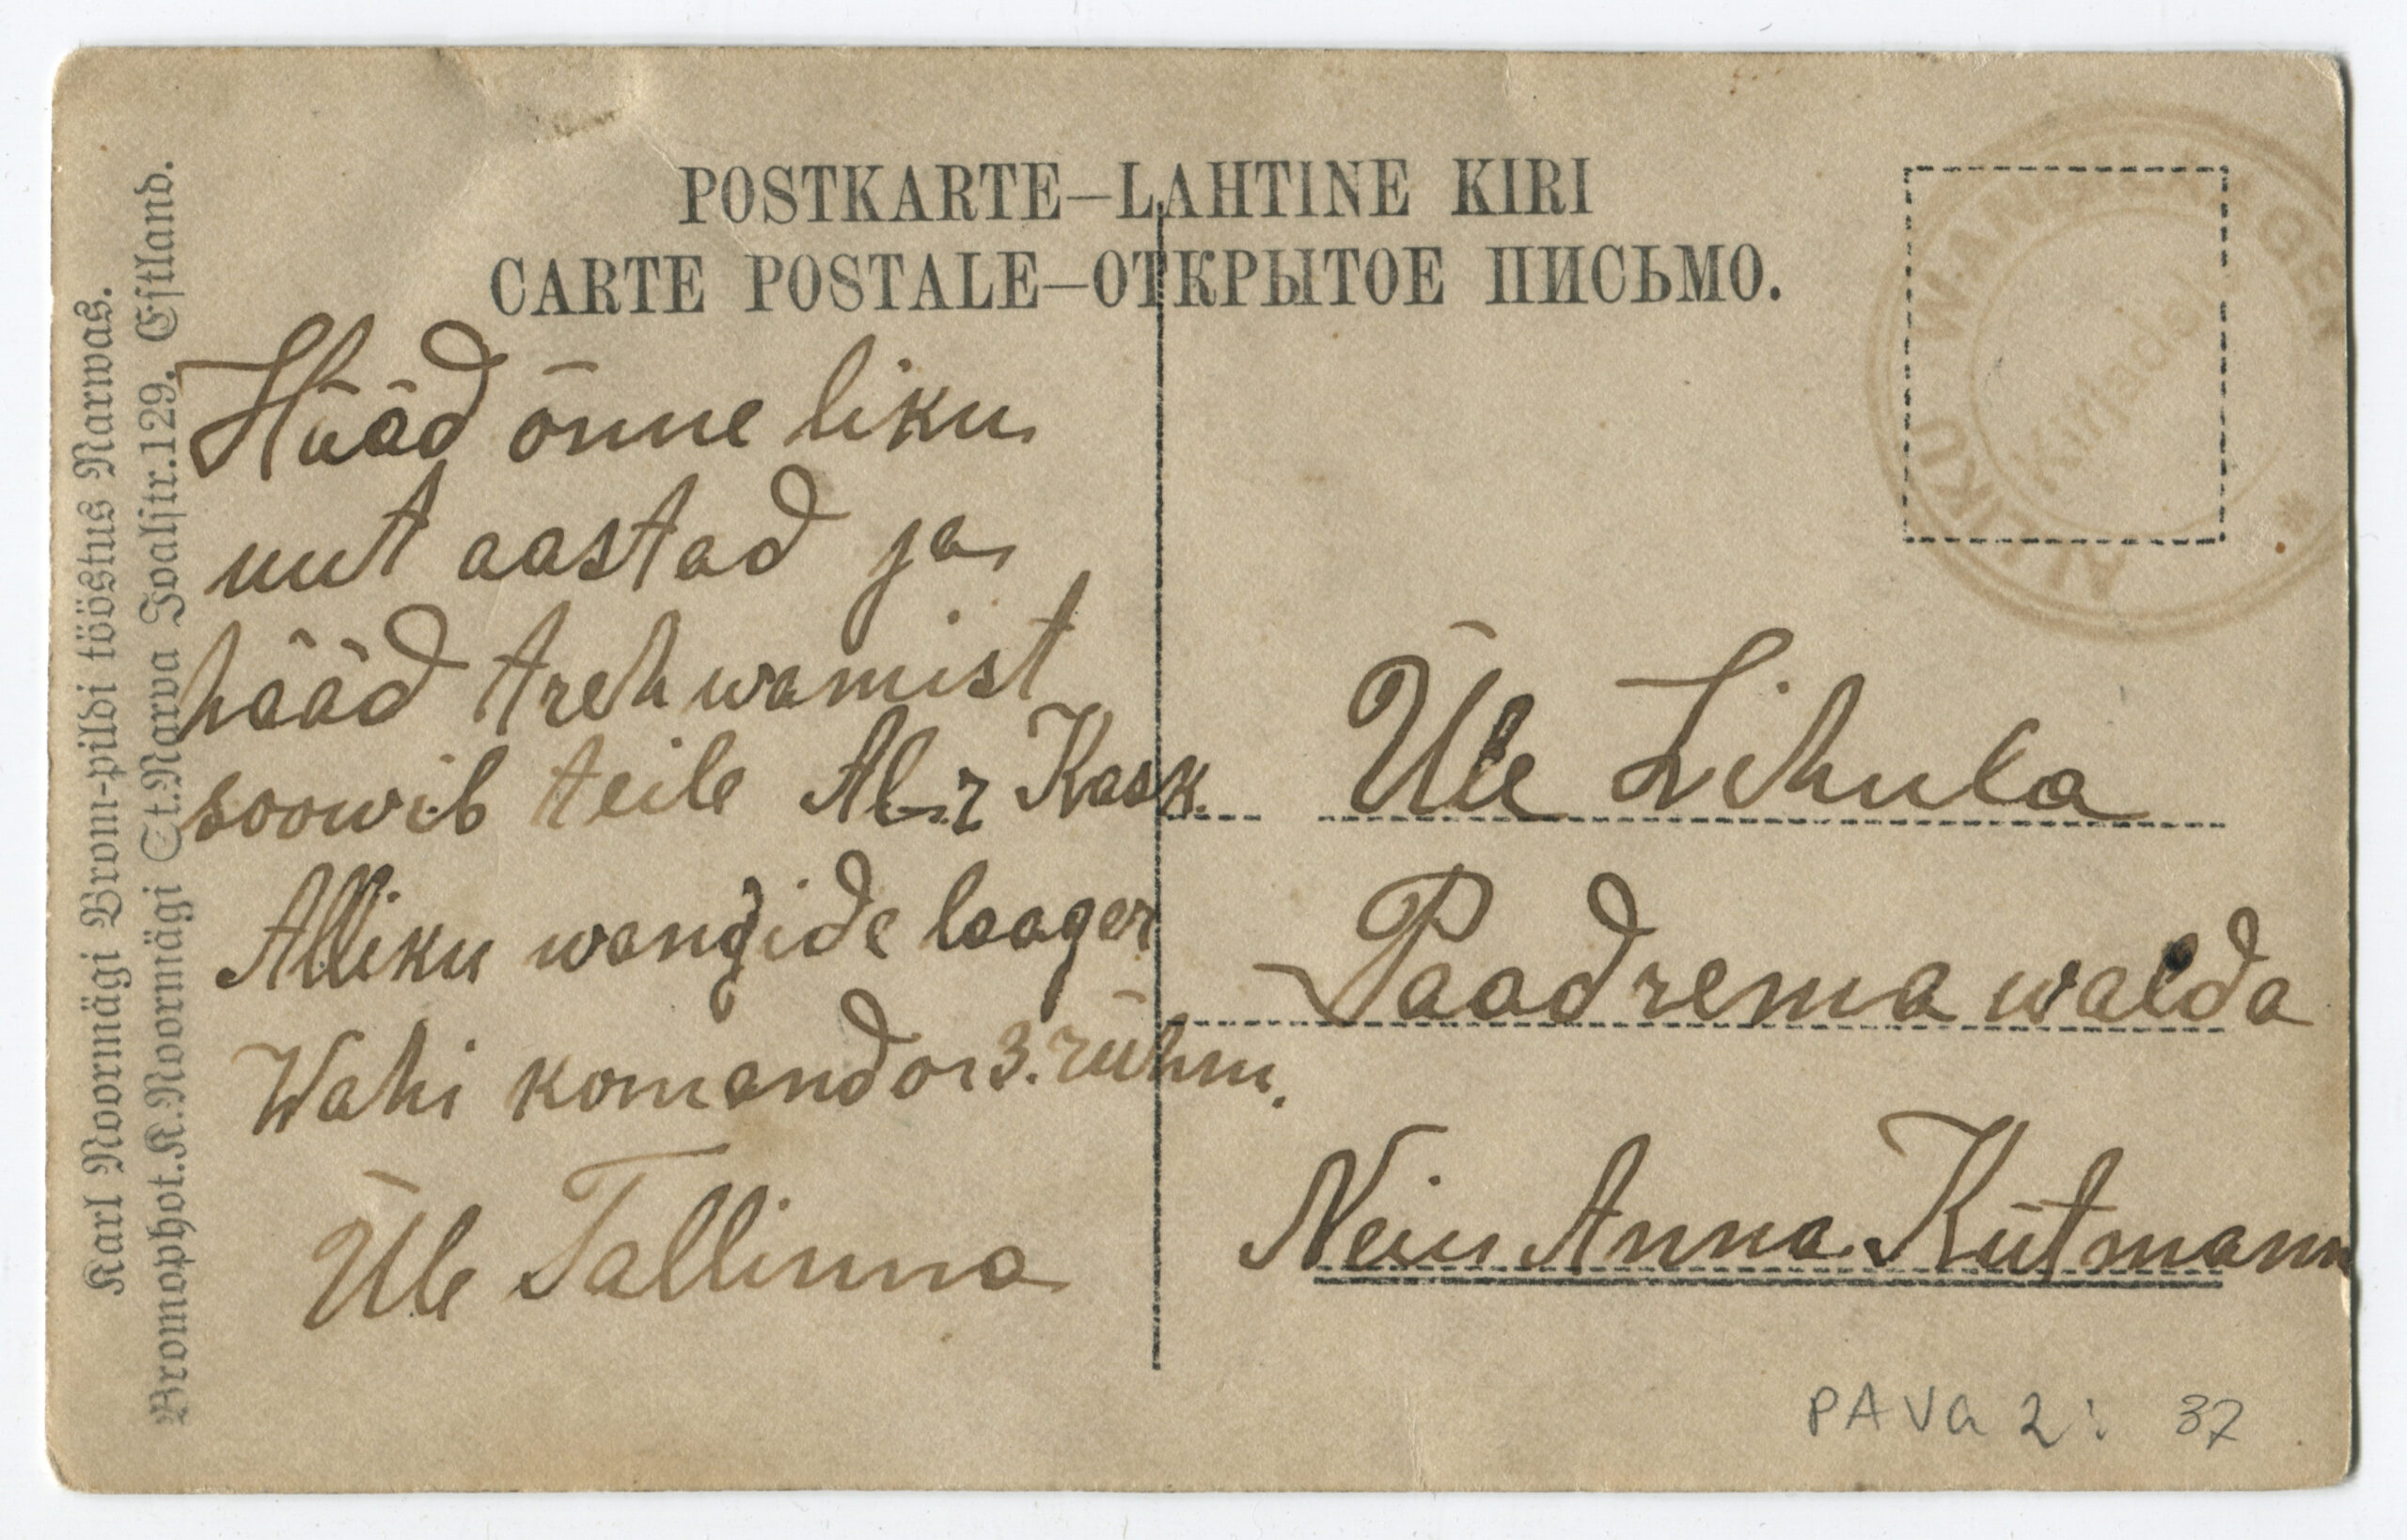 POSTKARTE—LAHTINE KIRI
CARTE POSTALE—ОТКРЫТОЕ ПИСЬМО.
Karl Noormägi Brom-pildi tööstus Narwas.
Bromophot. K. Noormägi St. Narwa Joalstr. 129. Estland.
Hääd õnne liku
uut aastad ja
hääd trehwamist
soowib teile Al-r Kask.
Alliku wangide laager
Wahi komandor 3. rühm.
Üle Tallinna
ALLIKU WANGI LAAGER *
Kirjade
Üle Lihula
Paadrema walda
Neiu Anna Kütmann
PAVa 2: 37